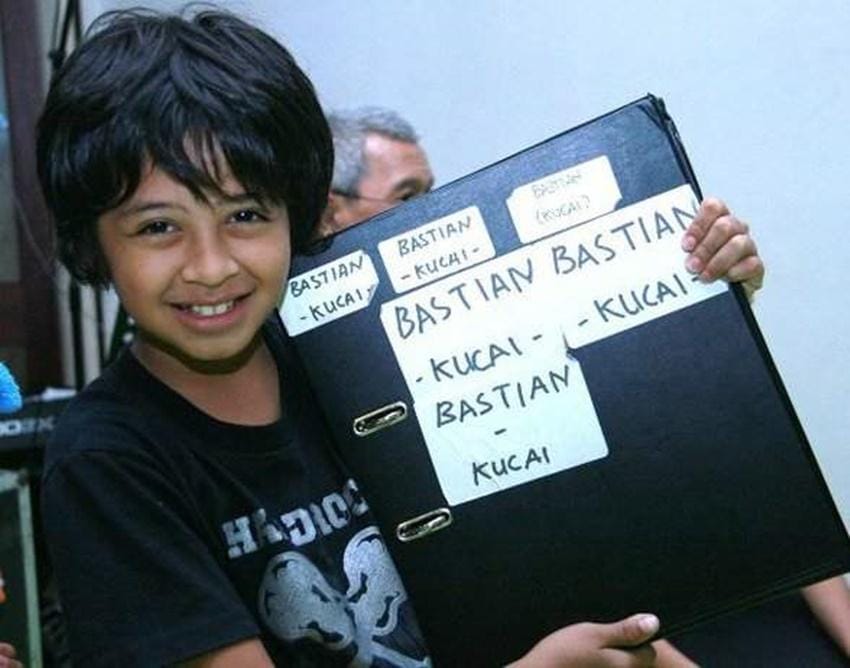 BASTIAN
- KUCAI -
BASTIAN
- KUCAI -
BASTIAN
(KUCAI)
BASTIAN
- KUCAI -
BASTIAN
- KUCAI -
BASTIAN
-
KUCAI